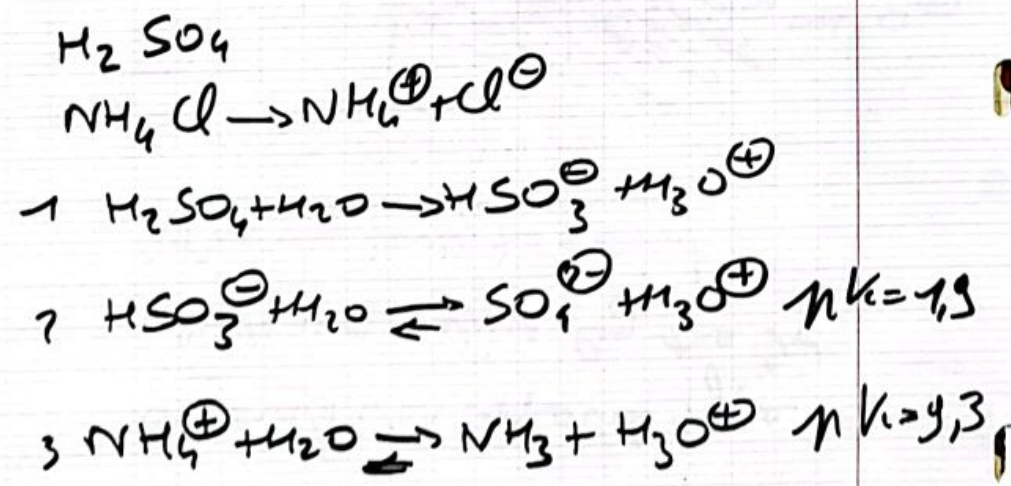 H₂SO₄
NH₄Cl → NH₄⊕ + Cl⊖
1 H₂SO₄ + H₂O → HSO₃⊖ + H₃O⊕
2 HSO₃⊖ + H₂O ⇌ SO₄²⁻ + H₃O⊕ pK = 1,9
3 NH₄⊕ + H₂O ⇌ NH₃ + H₃O⊕ pK = 9,3